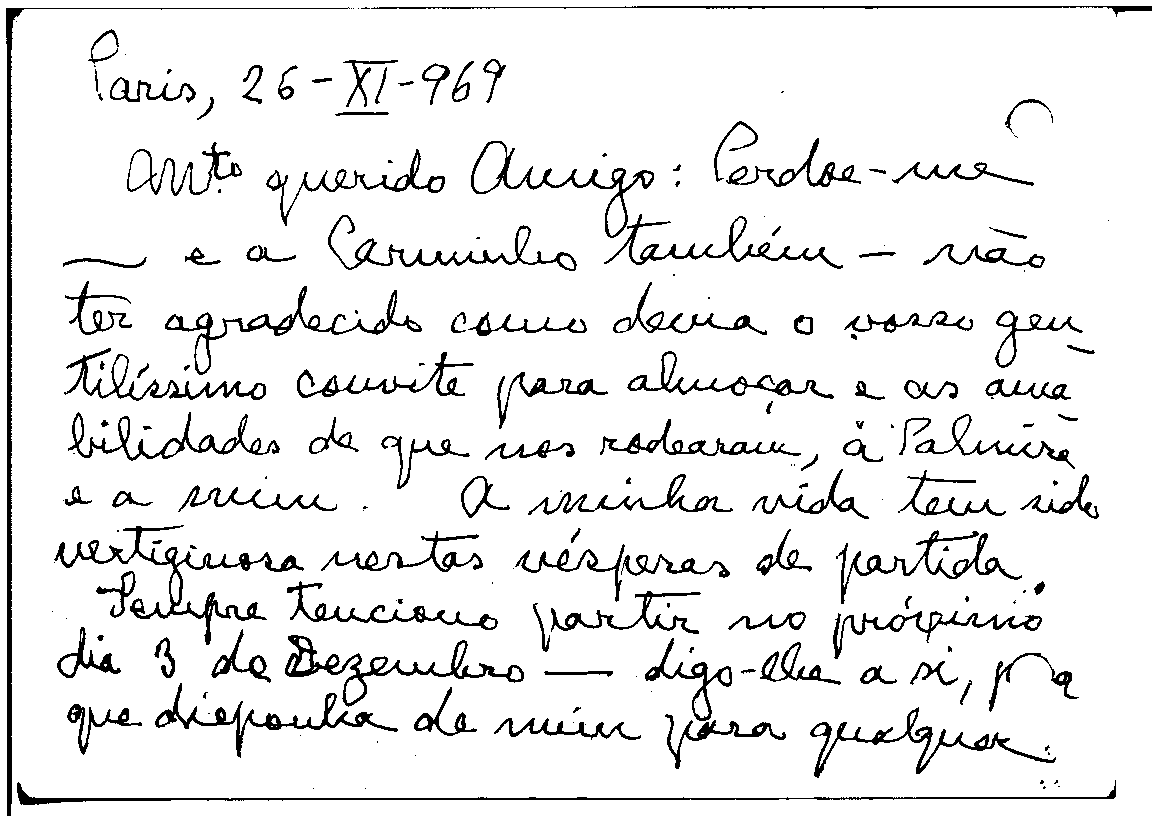 Paris, 26-XI-969
Mto querido Amigo: Perdoe-me
— e a Carminho também — não
ter agradecido como devia o vosso gen-
tilíssimo convite para almoçar e as ama-
bilidades de que nos rodearam, à Palmira
e a mim. A minha vida tem sido
vertiginosa nestas vésperas de partida.
Sempre tenciono partir no próximo
dia 3 de Dezembro — digo-lhe a si, pa
que disponha de mim para qualquer